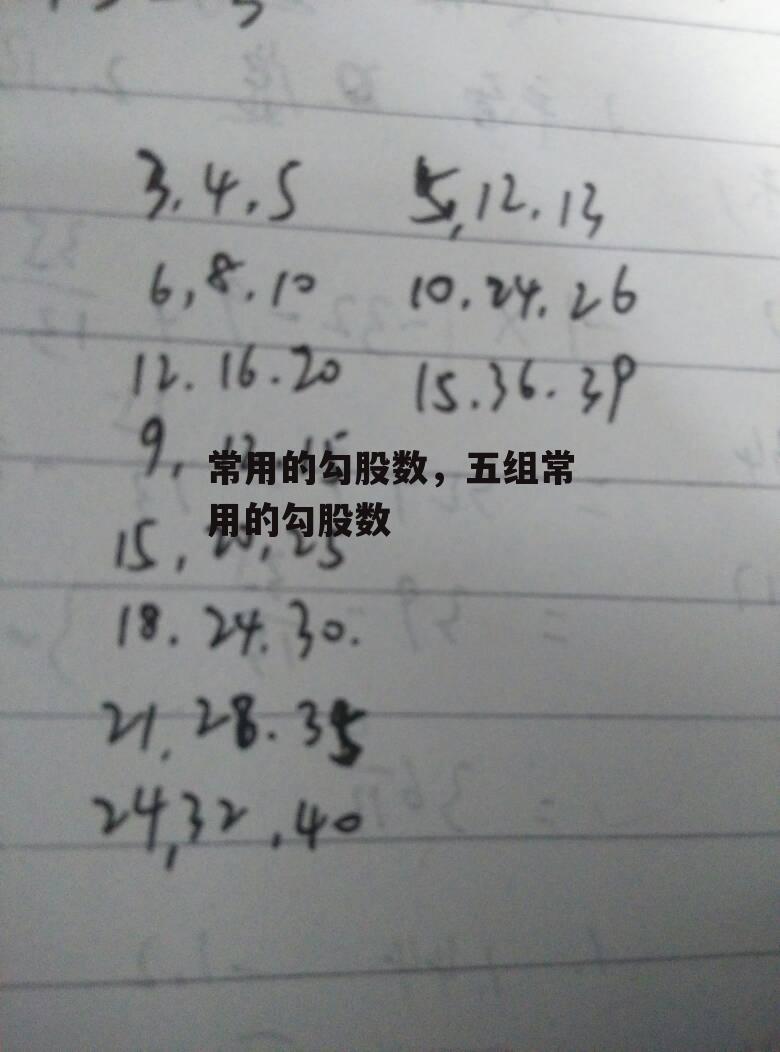 3,4,5 5,12,13
6,8,10 10,24,26
12.16.20 15.36.39
9,
常用的勾股数，五组常
用的勾股数
15, 25
18.24.30.
21,28.35
24,32,40